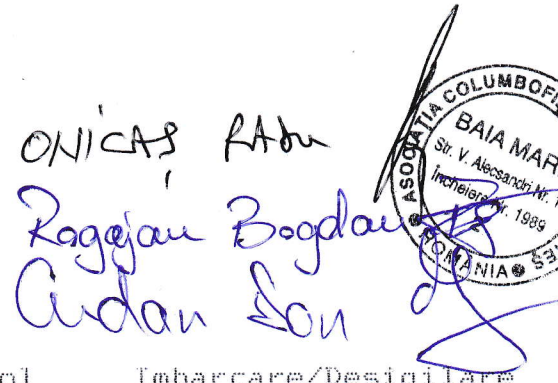 ONICAȘ RADU
Rogojan Bogdan
Ciudan Ion
ASOCIAȚIA COLUMBOFI
BAIA MAR
Str. V. Alecsandri Nr. 1
Încheiere Nr. 1989
ROMÂNIA
Imbarcare/Desigilare